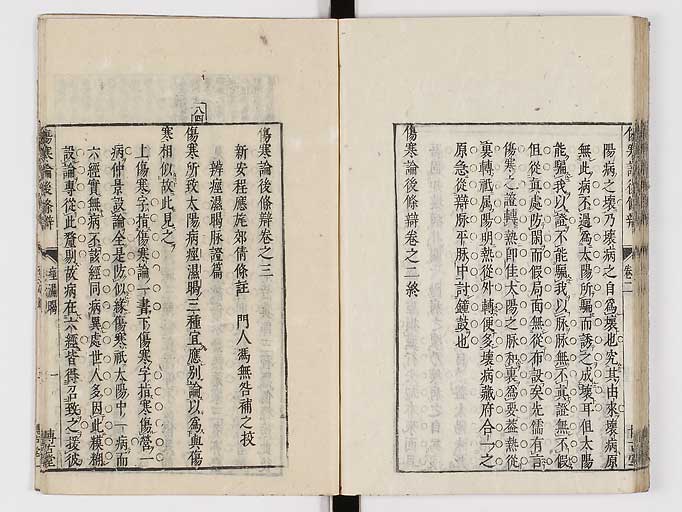 陽病之壞乃壞病之自為壞也究其由來壞病原
無此病不過為太陽所騙而誘之成壞耳但太陽
能騙我以證不能騙我以脉脉無不真證無不假
但從真處防閑而假局面無從布設矣先儒有言
傷寒之證轉熱即佳太陽之脉和裏為要蓋熱從
裏轉祇屬陽明熱從外轉便多壞病藏府合一之
原急從辯脉平脉中討鐘鼓也
傷寒論後條辯卷之二終
卷二
傷寒論後條辯卷之三
新安程應旄郊倩條註 門人馮無咎補之校
辨痙濕暍脉證篇
傷寒所致太陽病痙濕暍三種宜應別論以為與傷
寒相似故此見之
上傷寒字指傷寒論一書下傷寒字指寒傷營一
病仲景設論全是防似緣傷寒祇太陽中一病而
六經實無病不該經同病異處世人多因此糢糊
設論專從此釐剔故病在六經皆得召致之援彼
傷寒論後條辯
痙濕暍
一
八四